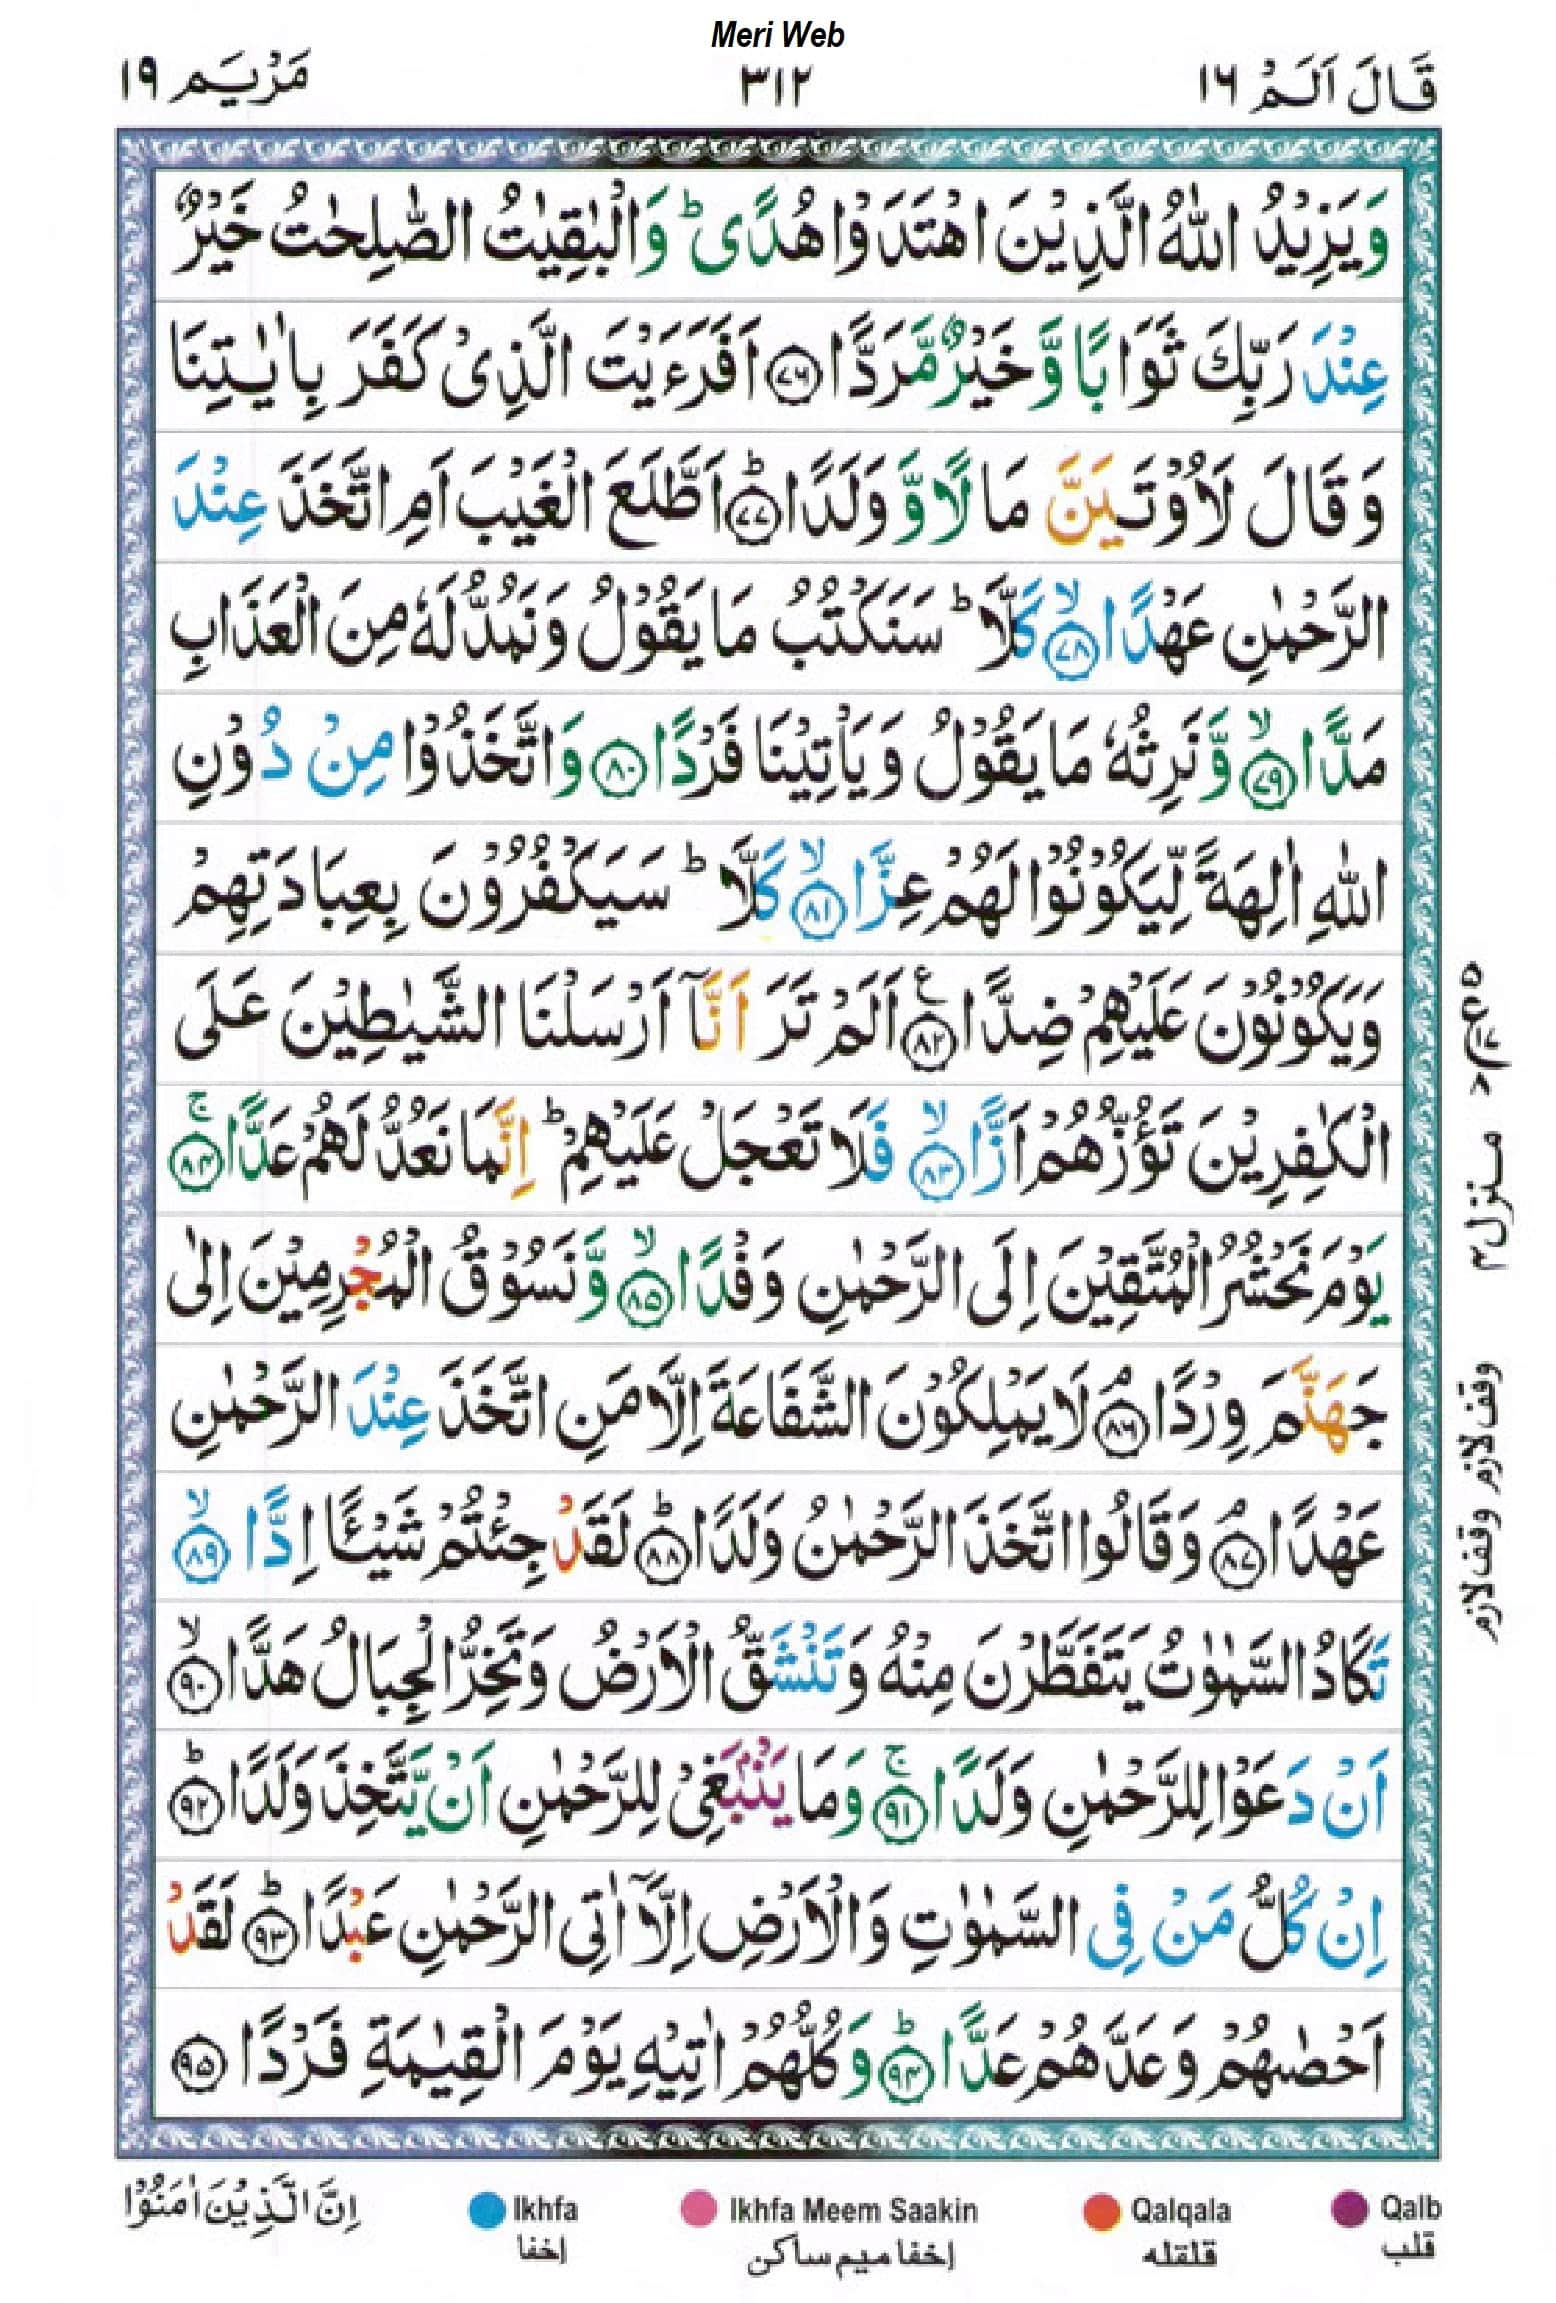 Meri Web
قَالَ اَلَمْ ١٦
٣١٢
مَرْيَم ١٩
وَيَزِيْدُ اللّٰهُ الَّذِيْنَ اهْتَدَوْا هُدًى ؕ وَالْبٰقِيٰتُ الصّٰلِحٰتُ خَيْرٌ
عِنْدَ رَبِّكَ ثَوَابًا وَّخَيْرٌ مَّرَدًّا ﴿٧٦﴾ اَفَرَءَيْتَ الَّذِىْ كَفَرَ بِاٰيٰتِنَا
وَقَالَ لَاُوْتَيَنَّ مَالًا وَّوَلَدًا ؕ ﴿٧٧﴾ اَطَّلَعَ الْغَيْبَ اَمِ اتَّخَذَ عِنْدَ
الرَّحْمٰنِ عَهْدًا ۙ ﴿٧٨﴾ كَلَّا ؕ سَنَكْتُبُ مَا يَقُوْلُ وَنَمُدُّ لَهٗ مِنَ الْعَذَابِ
مَدًّا ۙ ﴿٧٩﴾ وَّنَرِثُهٗ مَا يَقُوْلُ وَيَاْتِيْنَا فَرْدًا ﴿٨٠﴾ وَاتَّخَذُوْا مِنْ دُوْنِ
اللّٰهِ اٰلِهَةً لِّيَكُوْنُوْا لَهُمْ عِزًّا ۙ ﴿٨١﴾ كَلَّا ؕ سَيَكْفُرُوْنَ بِعِبَادَتِهِمْ
وَيَكُوْنُوْنَ عَلَيْهِمْ ضِدًّا ﴿٨٢﴾ اَلَمْ تَرَ اَنَّآ اَرْسَلْنَا الشَّيٰطِيْنَ عَلَى
الْكٰفِرِيْنَ تَؤُزُّهُمْ اَزًّا ۙ ﴿٨٣﴾ فَلَا تَعْجَلْ عَلَيْهِمْ ؕ اِنَّمَا نَعُدُّ لَهُمْ عَدًّا ۚ ﴿٨٤﴾
يَوْمَ نَحْشُرُ الْمُتَّقِيْنَ اِلَى الرَّحْمٰنِ وَفْدًا ۙ ﴿٨٥﴾ وَّنَسُوْقُ الْمُجْرِمِيْنَ اِلٰى
جَهَنَّمَ وِرْدًا ۘ ﴿٨٦﴾ لَا يَمْلِكُوْنَ الشَّفَاعَةَ اِلَّا مَنِ اتَّخَذَ عِنْدَ الرَّحْمٰنِ
عَهْدًا ۘ ﴿٨٧﴾ وَقَالُوا اتَّخَذَ الرَّحْمٰنُ وَلَدًا ؕ ﴿٨٨﴾ لَقَدْ جِئْتُمْ شَيْـًٔا اِدًّا ۙ ﴿٨٩﴾
تَكَادُ السَّمٰوٰتُ يَتَفَطَّرْنَ مِنْهُ وَتَنْشَقُّ الْاَرْضُ وَتَخِرُّ الْجِبَالُ هَدًّا ۙ ﴿٩٠﴾
اَنْ دَعَوْا لِلرَّحْمٰنِ وَلَدًا ۚ ﴿٩١﴾ وَمَا يَنْۢبَغِىْ لِلرَّحْمٰنِ اَنْ يَّتَّخِذَ وَلَدًا ؕ ﴿٩٢﴾
اِنْ كُلُّ مَنْ فِى السَّمٰوٰتِ وَالْاَرْضِ اِلَّآ اٰتِى الرَّحْمٰنِ عَبْدًا ؕ ﴿٩٣﴾ لَقَدْ
اَحْصٰهُمْ وَعَدَّهُمْ عَدًّا ؕ ﴿٩٤﴾ وَكُلُّهُمْ اٰتِيْهِ يَوْمَ الْقِيٰمَةِ فَرْدًا ﴿٩٥﴾
منزل ٤
وقف لازم
وقف لازم
اِنَّ الَّذِيْنَ اٰمَنُوْا
Ikhfa
اخفا
Ikhfa Meem Saakin
اخفا ميم ساكن
Qalqala
قلقله
Qalb
قلب